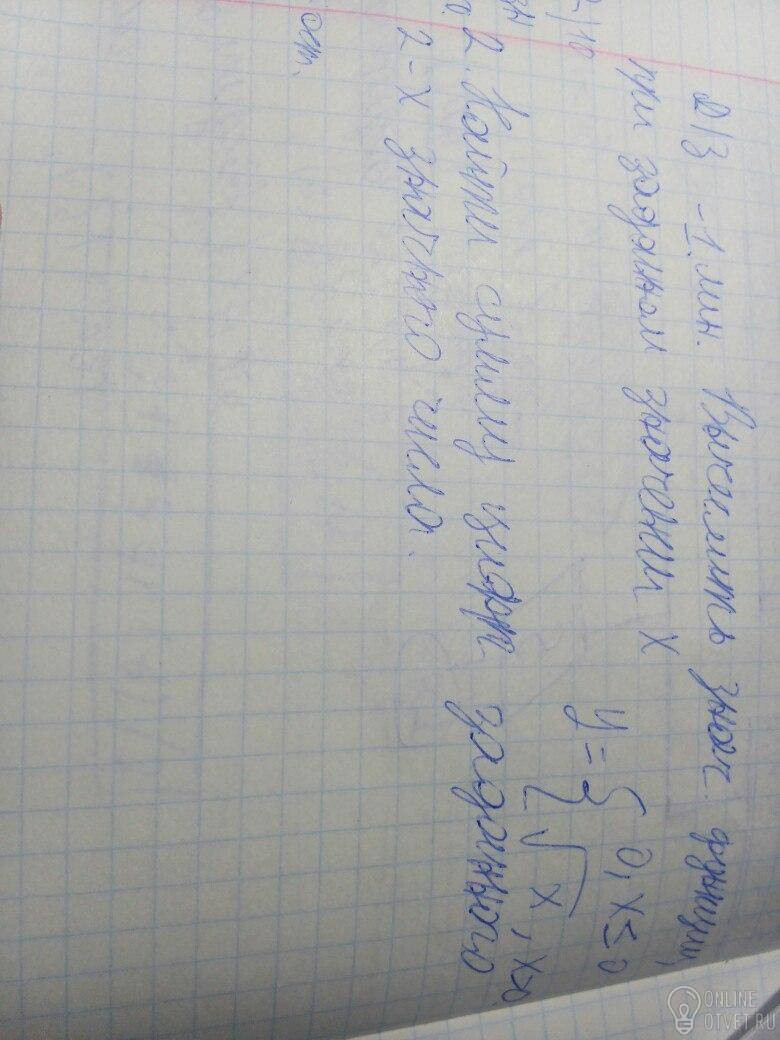 Д/З – 1. лин. Вычислить знач. функции,
при заданном значении x
y = { 0, x ≤ 0
√x, x>0
2. Найти сумму цифр заданного
2-х значного числа.
ONLINE
OTVET.RU